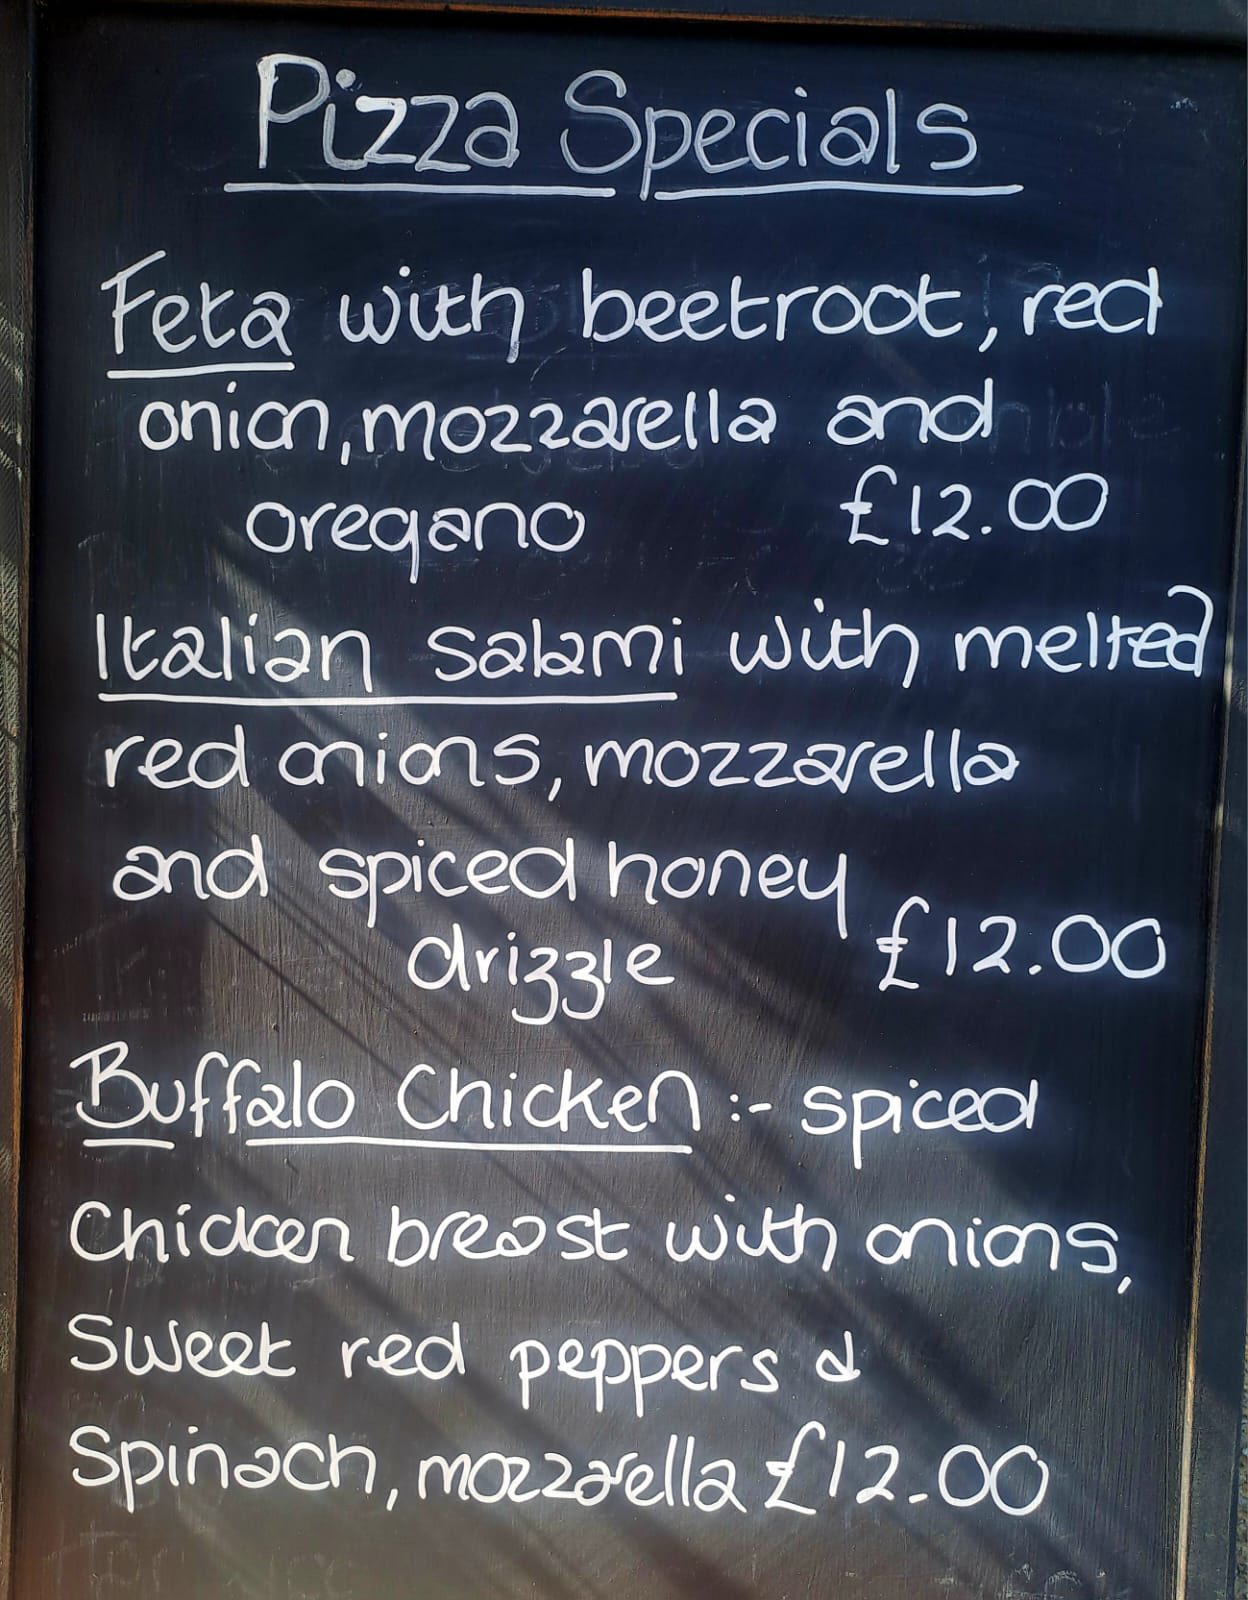 Pizza Specials
Feta with beetroot, red
onion, mozzarella and
oregano £12.00
Italian salami with melted
red onions, mozzarella
and spiced honey
drizzle £12.00
Buffalo Chicken :- spiced
Chicken breast with onions,
Sweet red peppers &
Spinach, mozzarella £12.00